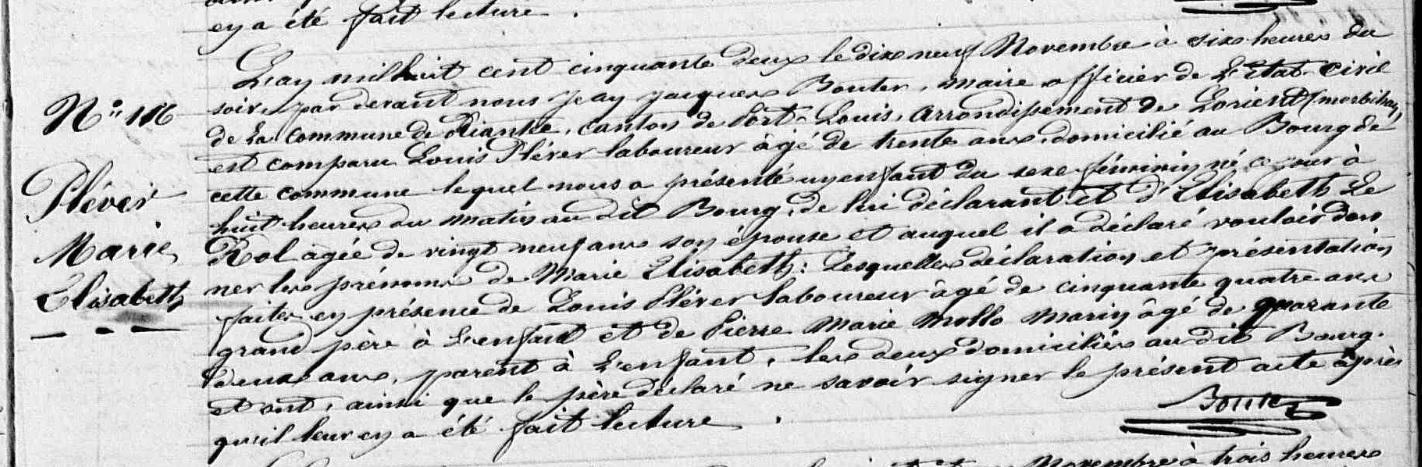 ey a été fait lecture.
L'an mil huit cent cinquante deux le dix neuf Novembre à six heures du
soir, par devant nous Jean Jacques Bouter, maire officier de l'état civil
de la commune de Riantec, canton de Port-Louis, arrondissement de Lorient (morbihan)
est comparu Louis Pléver laboureur âgé de trente ans domicilié au Bourg de
cette commune lequel nous a présenté un enfant du sexe féminin né ce jour à
huit heures du matin au dit Bourg, de lui déclarant et d'Elisabeth Le
Rol agée de vingt neuf ans son épouse et auquel il a déclaré vouloir don
ner les prénoms de Marie Elisabeth: Lesquelles déclaration et présentation
faites en présence de Louis Pléver laboureur âgé de cinquante quatre ans
grand père à l'enfant et de Pierre Marie Mollo marin âgé de quarante
deux ans, parent à l'enfant, les deux domiciliés au dit Bourg.
et ont, ainsi que le père déclaré ne savoir signer le présent acte après
qu'il leur en a été fait lecture.
Bouter
N° 116
Pléver
Marie
Elisabeth
Novembre à trois heures